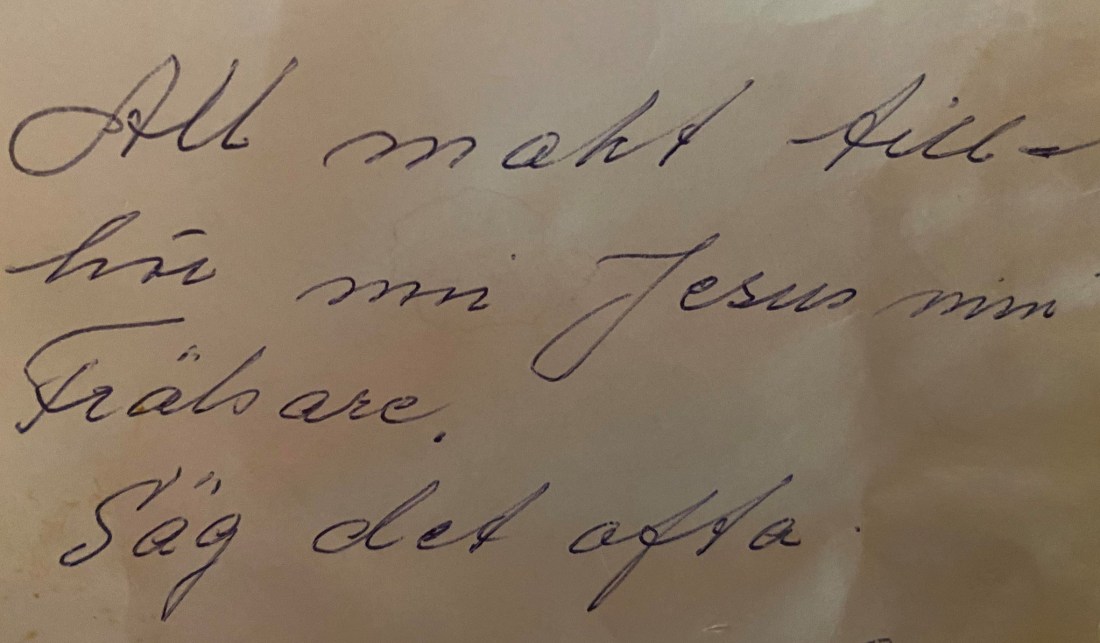 All makt till-
hör min Jesus min
Frälsare.
Säg det ofta.